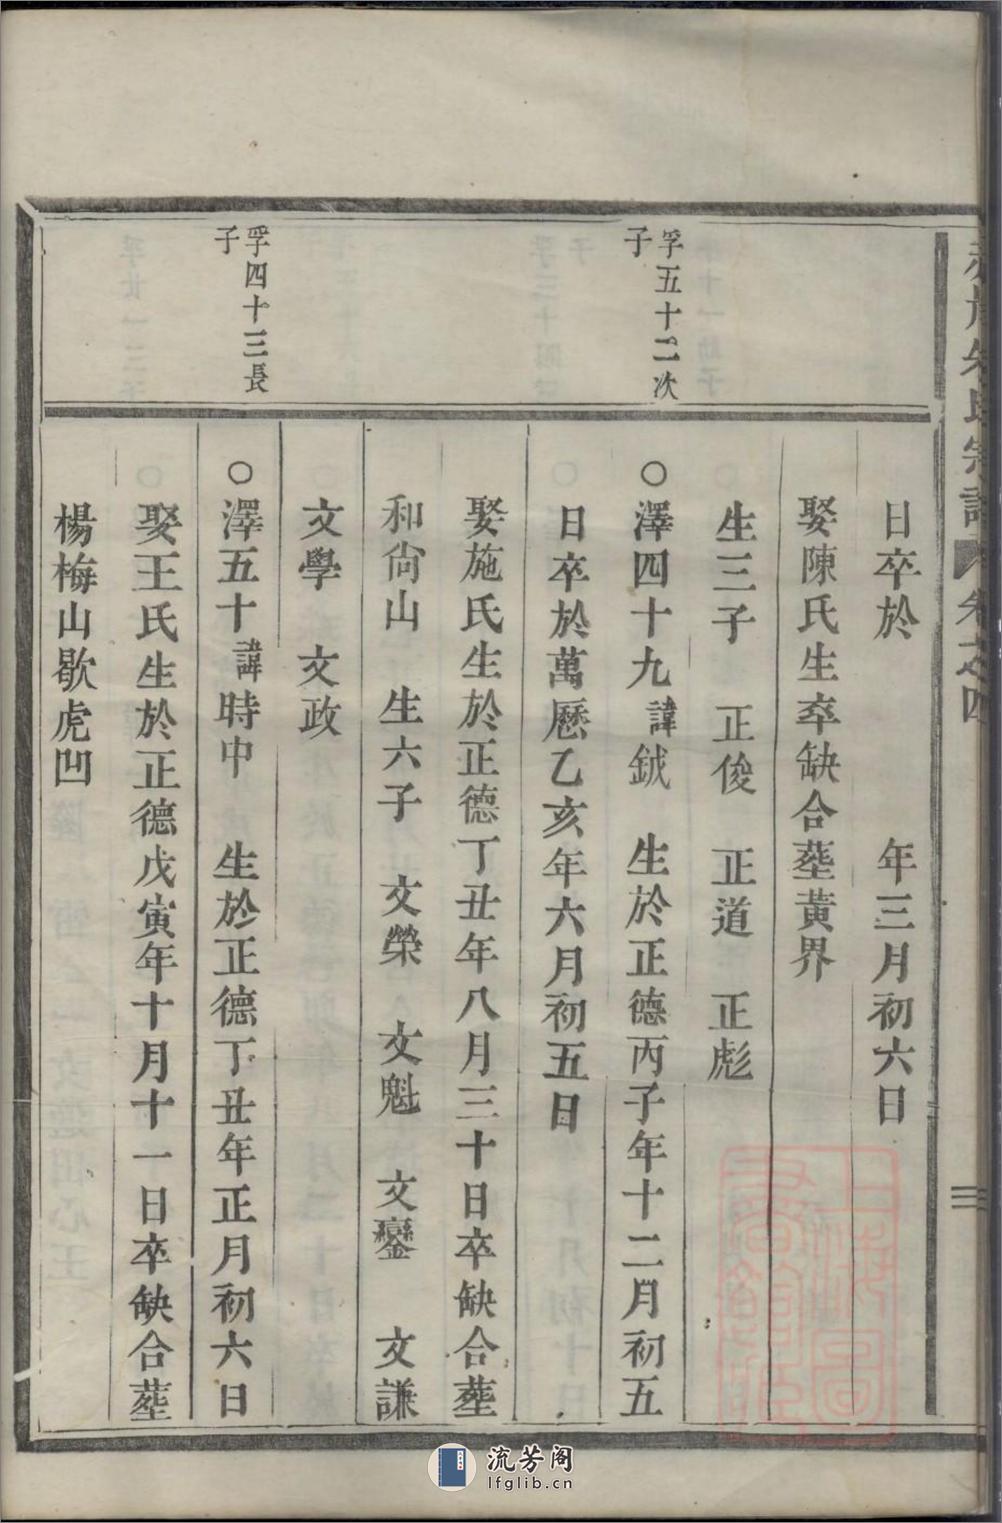 朱氏宗譜 卷之四
三
日卒於 年三月初六日
娶陳氏生卒缺合塟黄界
生三子 正俊 正道 正彪
孚五十二次
子
○澤四十九諱鉞 生於正德丙子年十二月初五
日卒於萬曆乙亥年六月初五日
娶施氏生於正德丁丑年八月三十日卒缺合塟
和尙山 生六子 文榮 文魁 文鑾 文謙
文學 文政
孚四十三長
子
○澤五十諱時中 生於正德丁丑年正月初六日
娶王氏生於正德戊寅年十月十一日卒缺合塟
楊梅山歇虎凹
流芳阁
lfglib.cn